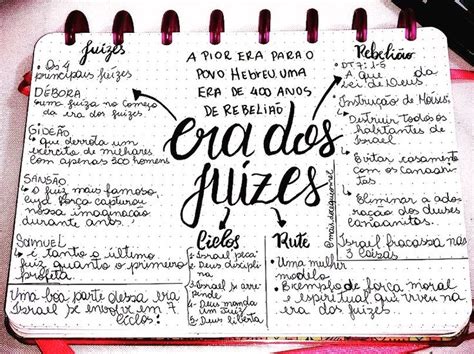 Juízes
• Os 4
principais juízes
DÉBORA
uma juíza no começo
da era dos juízes
GIDEÃO
que derrota um
exército de milhares
com apenas 300 homens
SANSÃO
o juiz mais famoso
cuja força capturou
nossa imaginação
durante anos.
SAMUEL
é tanto o último
juiz quanto o primeiro
profeta.
Uma boa parte dessa era
Israel se envolve em 7
ciclos:
A PIOR ERA PARA O
POVO HEBREU. UMA
ERA DE 400 ANOS
DE REBELIÃO
era dos
juízes
Ciclos
1- Israel peca
2- Deus discipli
na
3- Israel se arre
pende
4- Deus manda
um juiz
5- Deus liberta
Rute
• Uma mulher
modelo
• Exemplo de força moral
e espiritual que viveu na
era dos juízes.
Rebelião
• DT 7:1-5
A que da
lei de Deus
Instrução de Moisés:
Destruir todos os
habitantes de
Israel
Evitar casamento
com os canaanitas
Eliminar a ado-
ração dos deuses
canaanitas.
Israel fracassa nas
3 coisas